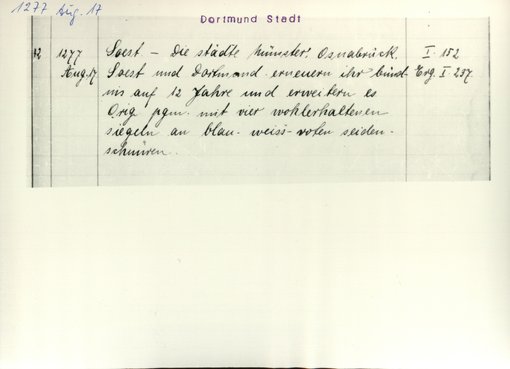 1277 Aug. 17
Dortmund Stadt
12 1277 Soest – Die städte Münster, Osnabrück, I. 152
Aug. 17 Soest und Dortmund erneuern ihr bünd- Erg. I 237.
nis auf 12 Jahre und erweitern es
Orig pgm. mit vier wohlerhaltenen
siegeln an blau- weiss-roten seiden-
schnüren.